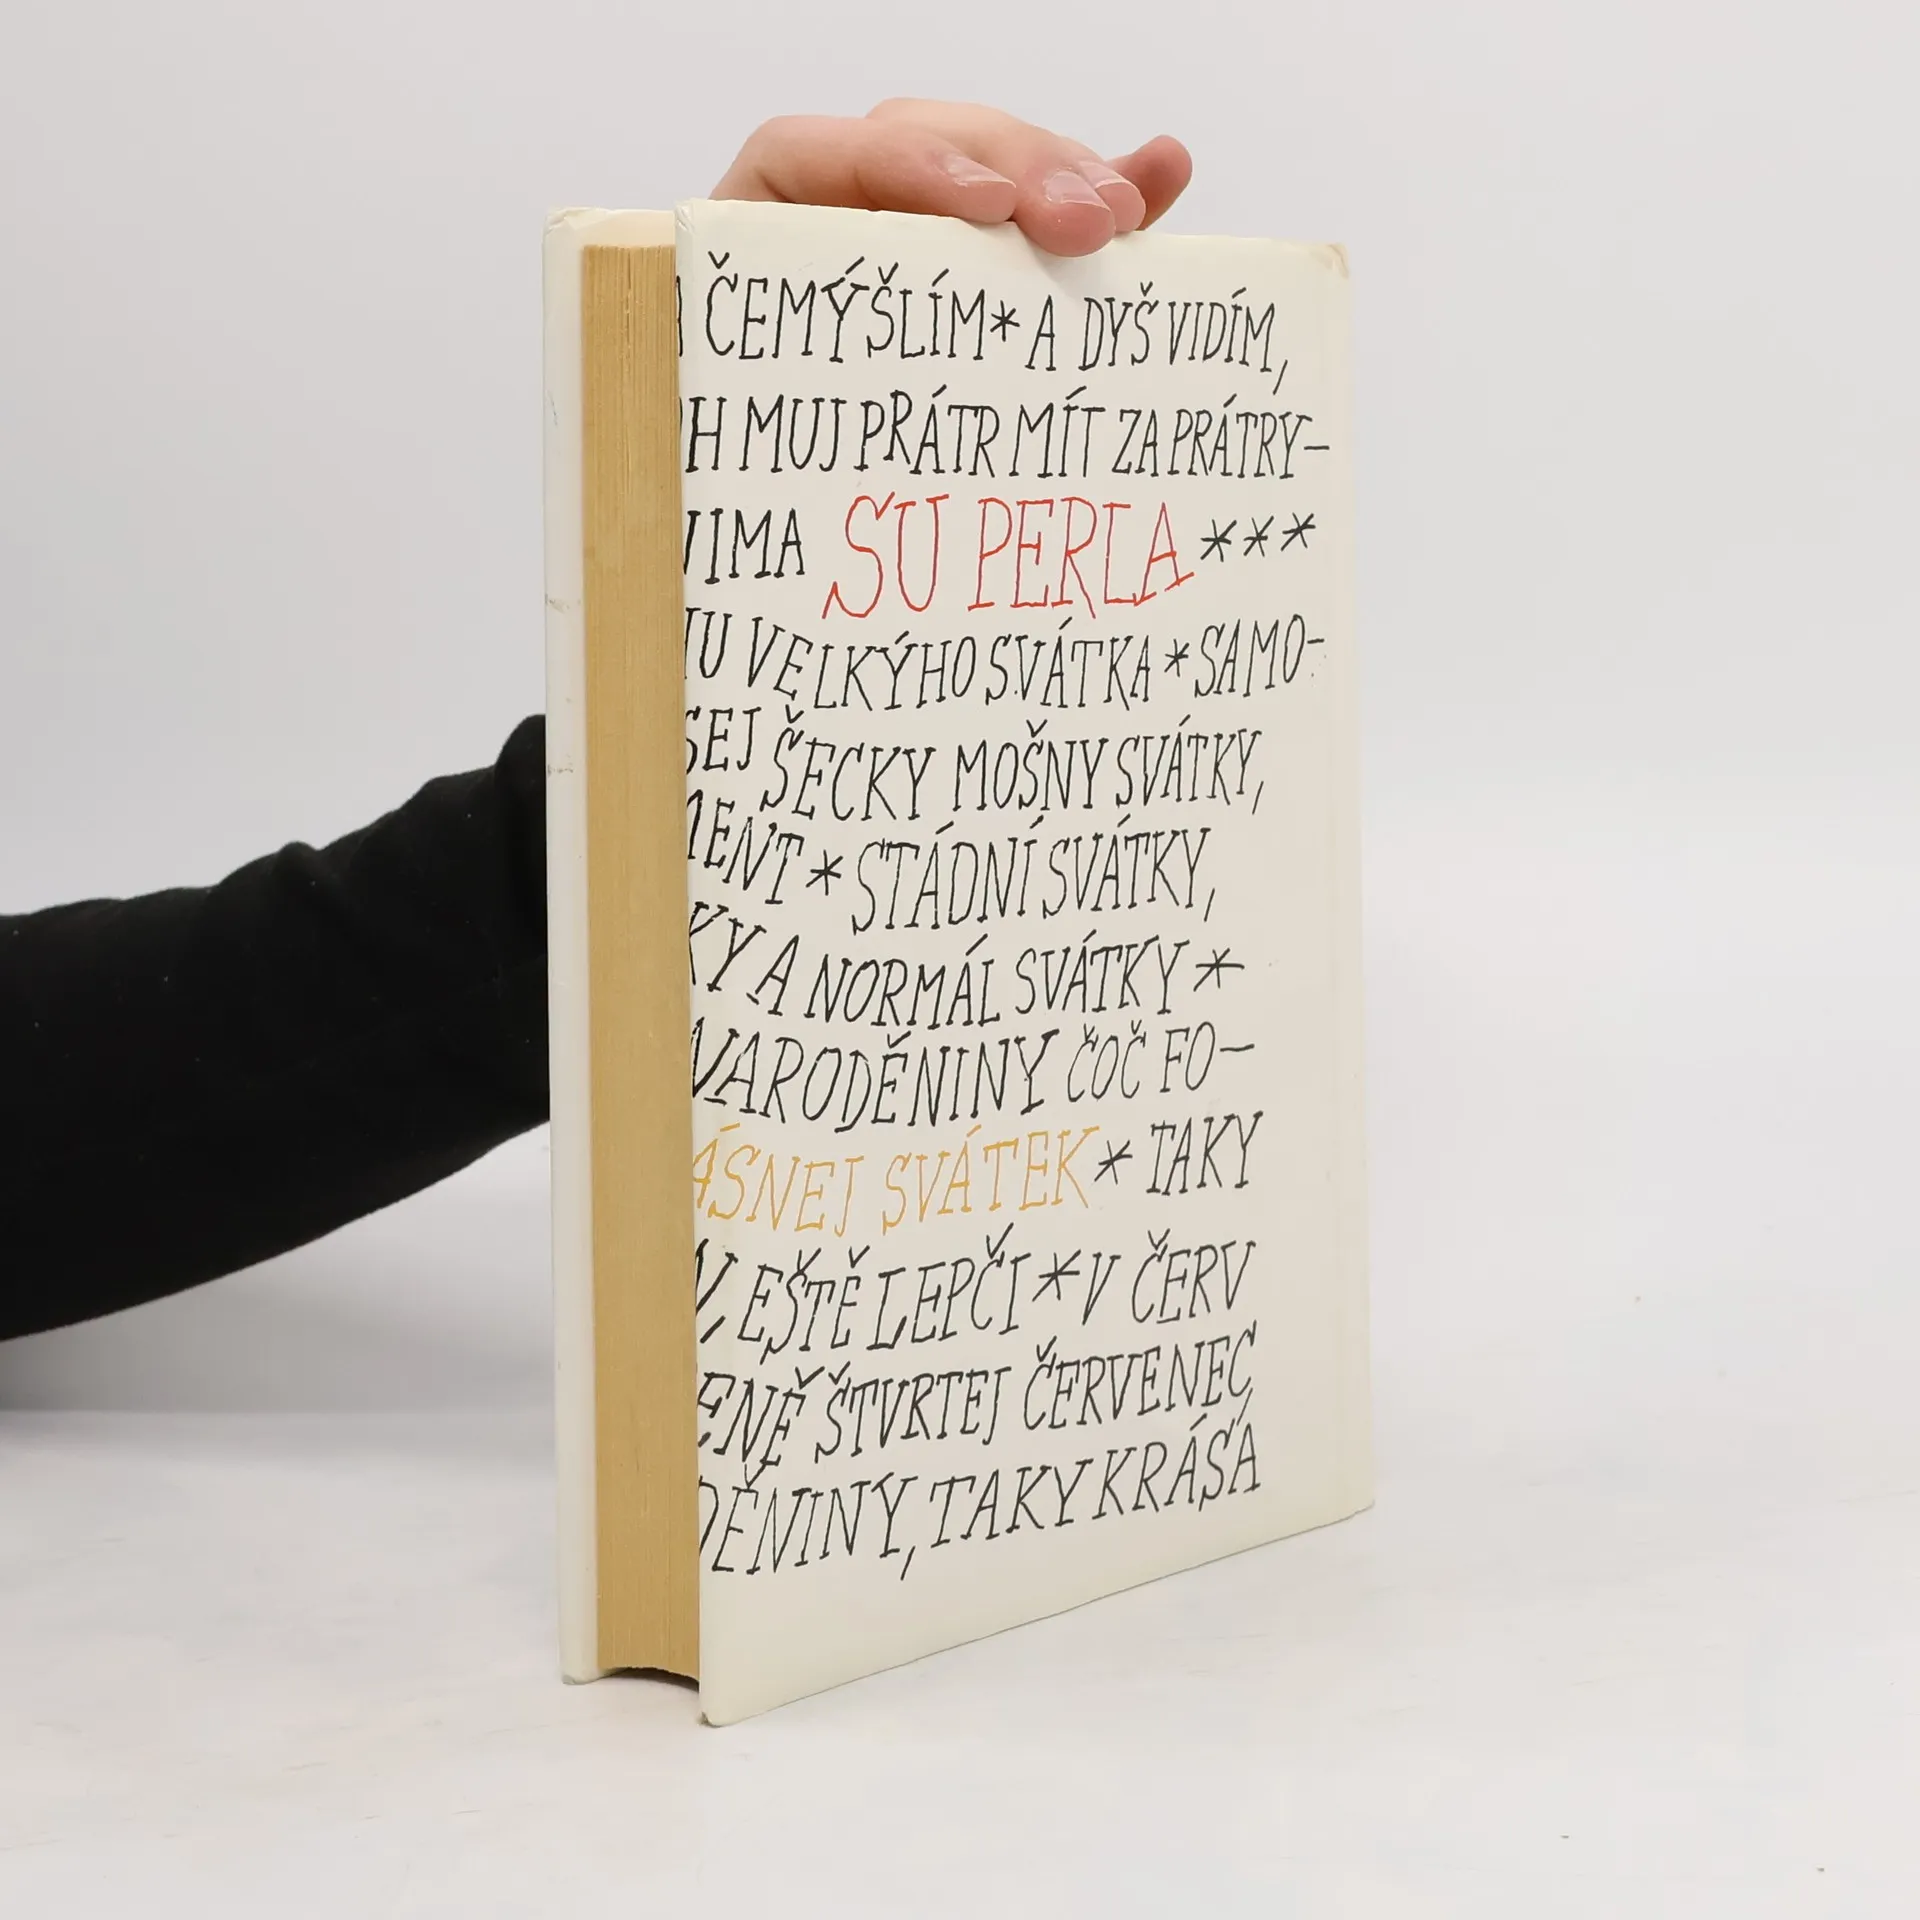 ČEMÝŠLÍM * A DYŠ VIDÍM,
H MUJ PRÁTR MÍT ZA PRÁTRY-
IMA SU PERLA ***
U VELKÝHO SVÁTKA * SAMO-
SEJ ŠECKY MOŠNY SVÁTKY,
MENT * STÁDNÍ SVÁTKY,
KY A NORMÁL SVÁTKY *
NARODĚNINY ČOČ FO-
ÁSNEJ SVÁTEK * TAKY
EŠTĚ LEPČI * V ČERV
ENĚ ŠTVRTEJ ČERVENEC
DĚNINY, TAKY KRÁSÁ